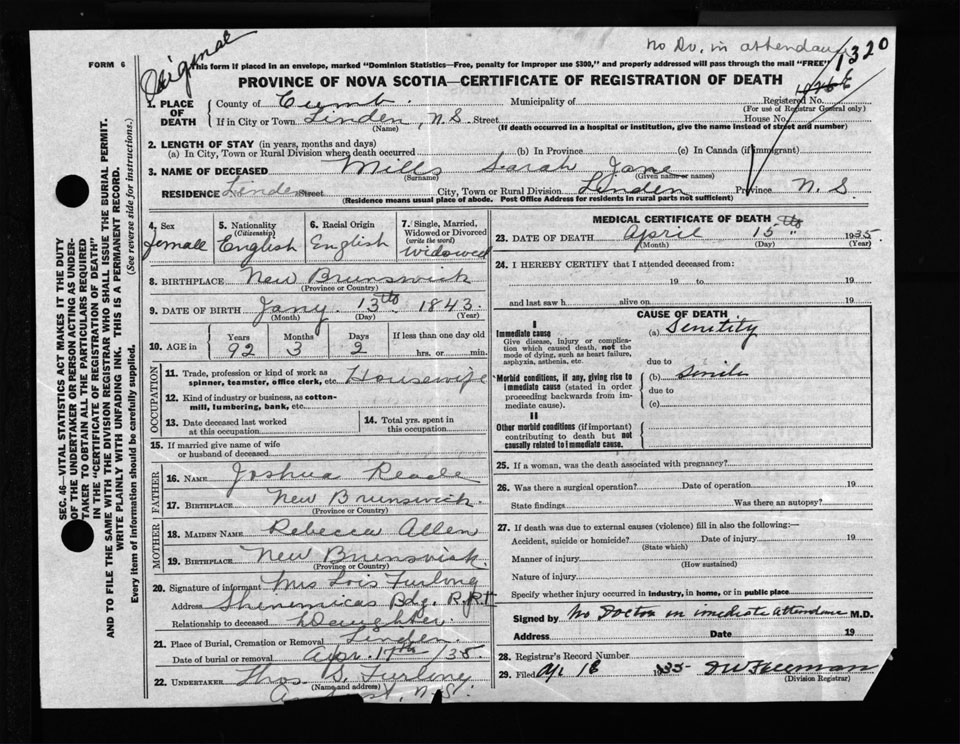 no Dr. in attendance
Original
1320
FORM 6
This form if placed in an envelope, marked "Dominion Statistics—Free, penalty for improper use $300," and properly addressed will pass through the mail "FREE"
PROVINCE OF NOVA SCOTIA—CERTIFICATE OF REGISTRATION OF DEATH
1. PLACE OF DEATH
County of Cumb. Municipality of Registered No.
(For use of Registrar General only)
If in City or Town Linden, N.S Street House No.
(Name) (If death occurred in a hospital or institution, give the name instead of street and number)
2. LENGTH OF STAY (in years, months and days)
(a) In City, Town or Rural Division where death occurred (b) In Province (c) In Canada (if immigrant)
3. NAME OF DECEASED Mills Sarah Jane
(Surname) (Given name or names)
RESIDENCE Linden Street City, Town or Rural Division Linden Province N.S
(Residence means usual place of abode. Post Office Address for residents in rural parts not sufficient)
4. Sex 5. Nationality (Citizenship) 6. Racial Origin 7. Single, Married, Widowed or Divorced (write the word)
female English English widowed
8. BIRTHPLACE New Brunswick
(Province or Country)
9. DATE OF BIRTH Jany. 13th 1843.
(Month) (Day) (Year)
10. AGE in Years Months Days If less than one day old
92 3 2 hrs. or min.
OCCUPATION
11. Trade, profession or kind of work as spinner, teamster, office clerk, etc. Housewife
12. Kind of industry or business, as cotton-mill, lumbering, bank, etc.
13. Date deceased last worked at this occupation 14. Total yrs. spent in this occupation
15. If married give name of wife or husband of deceased
FATHER
16. NAME Joshua Reade
17. BIRTHPLACE New Brunswick.
(Province or Country)
MOTHER
18. MAIDEN NAME Rebecca Allen
19. BIRTHPLACE New Brunswick.
(Province or Country)
20. Signature of informant Mrs Lois Furlong
Address Shinemicas Bdg. R.R.1
Relationship to deceased Daughter.
21. Place of Burial, Cremation or Removal Linden.
Date of burial or removal Apr. 17th /35.
22. UNDERTAKER Thos. D. Furlong
(Name and address)
Amherst, N.S.
MEDICAL CERTIFICATE OF DEATH
23. DATE OF DEATH April 15th 1935
(Month) (Day) (Year)
24. I HEREBY CERTIFY that I attended deceased from:
19 to 19
and last saw h alive on 19
CAUSE OF DEATH
I
Immediate cause
Give disease, injury or complication which caused death, not the mode of dying, such as heart failure, asphyxia, asthenia, etc.
(a) Senility
due to
Morbid conditions, if any, giving rise to immediate cause (stated in order proceeding backwards from immediate cause).
(b) Senile
due to
(c)
II
Other morbid conditions (if important) contributing to death but not causally related to immediate cause.
25. If a woman, was the death associated with pregnancy?
26. Was there a surgical operation? Date of operation 19
State findings Was there an autopsy?
27. If death was due to external causes (violence) fill in also the following:—
Accident, suicide or homicide? Date of injury 19
(State which)
Manner of injury
(How sustained)
Nature of injury
Specify whether injury occurred in industry, in home, or in public place
Signed by No Doctor in imediate attendance M.D.
Address Date 19
28. Registrar's Record Number
29. Filed 1935 Freeman
(Division Registrar)
SEC. 46—VITAL STATISTICS ACT MAKES IT THE DUTY
OF THE UNDERTAKER OR PERSON ACTING AS UNDER-
TAKER TO OBTAIN ALL THE PARTICULARS REQUIRED
IN THE "CERTIFICATE OF REGISTRATION OF DEATH"
AND TO FILE THE SAME WITH THE DIVISION REGISTRAR WHO SHALL ISSUE THE BURIAL PERMIT.
WRITE PLAINLY WITH UNFADING INK. THIS IS A PERMANENT RECORD.
Every item of information should be carefully supplied. (See reverse side for instructions.)